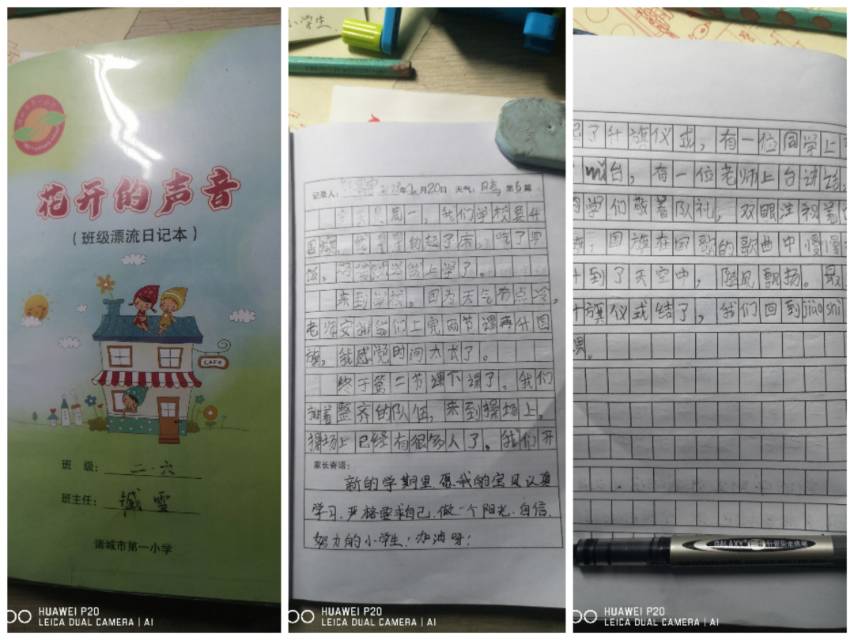 花开的声音
(班级漂流日记本)
CAFE
班 级: 二·六
班主任: 臧 雪
诸城市第一小学
HUAWEI P20
LEICA DUAL CAMERA | AI
小学生
记录人: 年 月20日 天气: 第5篇
周一,我们学校要升
国旗,起了床,吃了早
饭,上学了。
来到学校,因为天气有点冷,
老师安排我们上完两节课再升国
旗,我感觉时间太长了。
终于第二节课下课了,我们
整齐的队伍,来到操场上。
操场上已经有很多人了。我们开
家长寄语:
新的学期里愿我的宝贝认真
学习,严格要求自己,做一个阳光、自信、
努力的小学生!加油呀!
HUAWEI P20
LEICA DUAL CAMERA | AI
了升旗仪式,有一位同学上
台,有一位老师上台讲话,
同学们敬着队礼,双眼注视着
国旗在国歌的歌曲中慢慢
升到了天空中,随风飘扬。最
升旗仪式结了,我们回到jiào shì
HUAWEI P20
LEICA DUAL CAMERA | AI